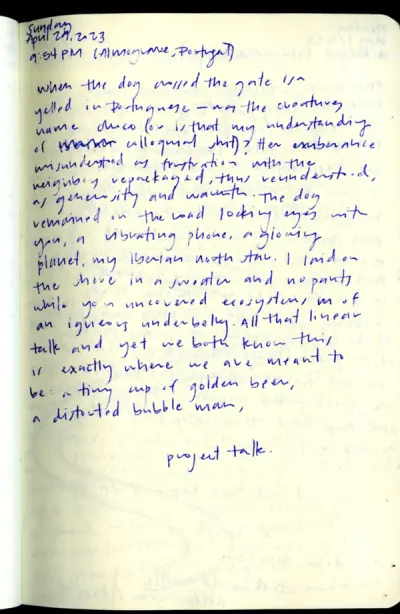 Sunday
April 29, 2023
9:54 PM (Almograve, Portugal)
when the dog crossed the gate Isa
yelled in Portuguese — was the creatures
name chuco (or is that my understanding
of colloquial shit)? Her exuberance
misunderstood as frustration with the
neighbor, repackaged, thus reunderstood,
as generosity and warmth. The dog
remained in the road locking eyes with
you, a vibrating phone, a glowing
planet, my Iberian north star. I laid on
the shore in a sweater and no pants
while you uncovered ecosystems in of
an igneous underbelly. All that linear
talk and yet we both know this
is exactly where we are meant to
be: a tiny cup of golden beer,
a distorted bubble man,
project talk.